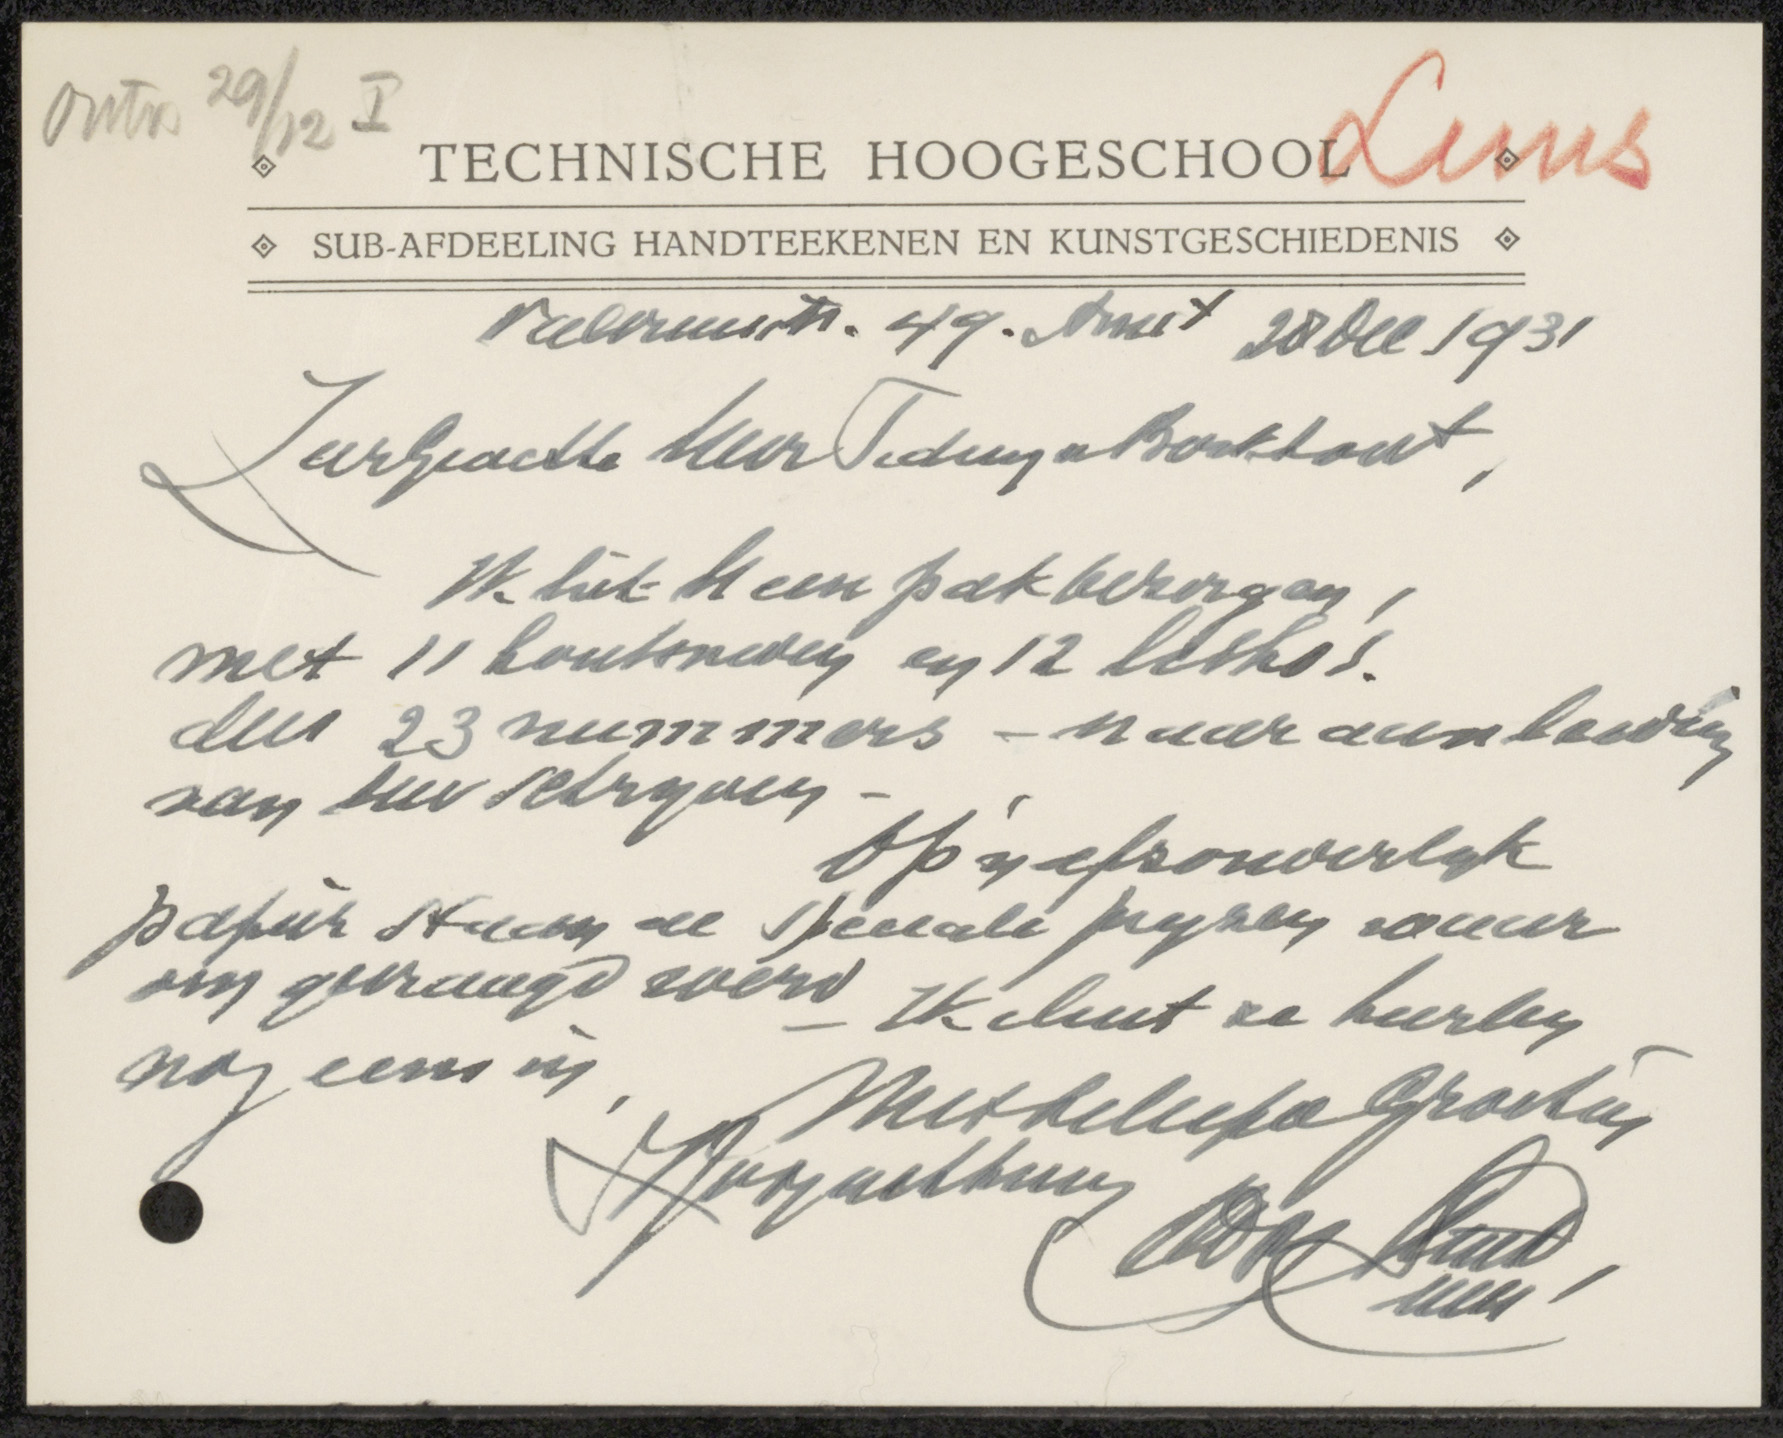 ontv 29/12 I
Luns
TECHNISCHE HOOGESCHOOL
SUB-AFDEELING HANDTEEKENEN EN KUNSTGESCHIEDENIS
49. Amst 28 Dec 1931
Zeer Geachte Heer Teding v Berkhout,
Ik liet U een pak bezorgen,
met 11 houtsneden en 12 litho's.
dus 23 nummers - naar aanleiding
van Uw schrijven -
Op 'n afzonderlijk
papier staan de speciale prijzen waar
om gevraagd werd - Ik sluit ze hierbij
nog eens in,
Met beleefde Groeten
Hoogachtend
Luns